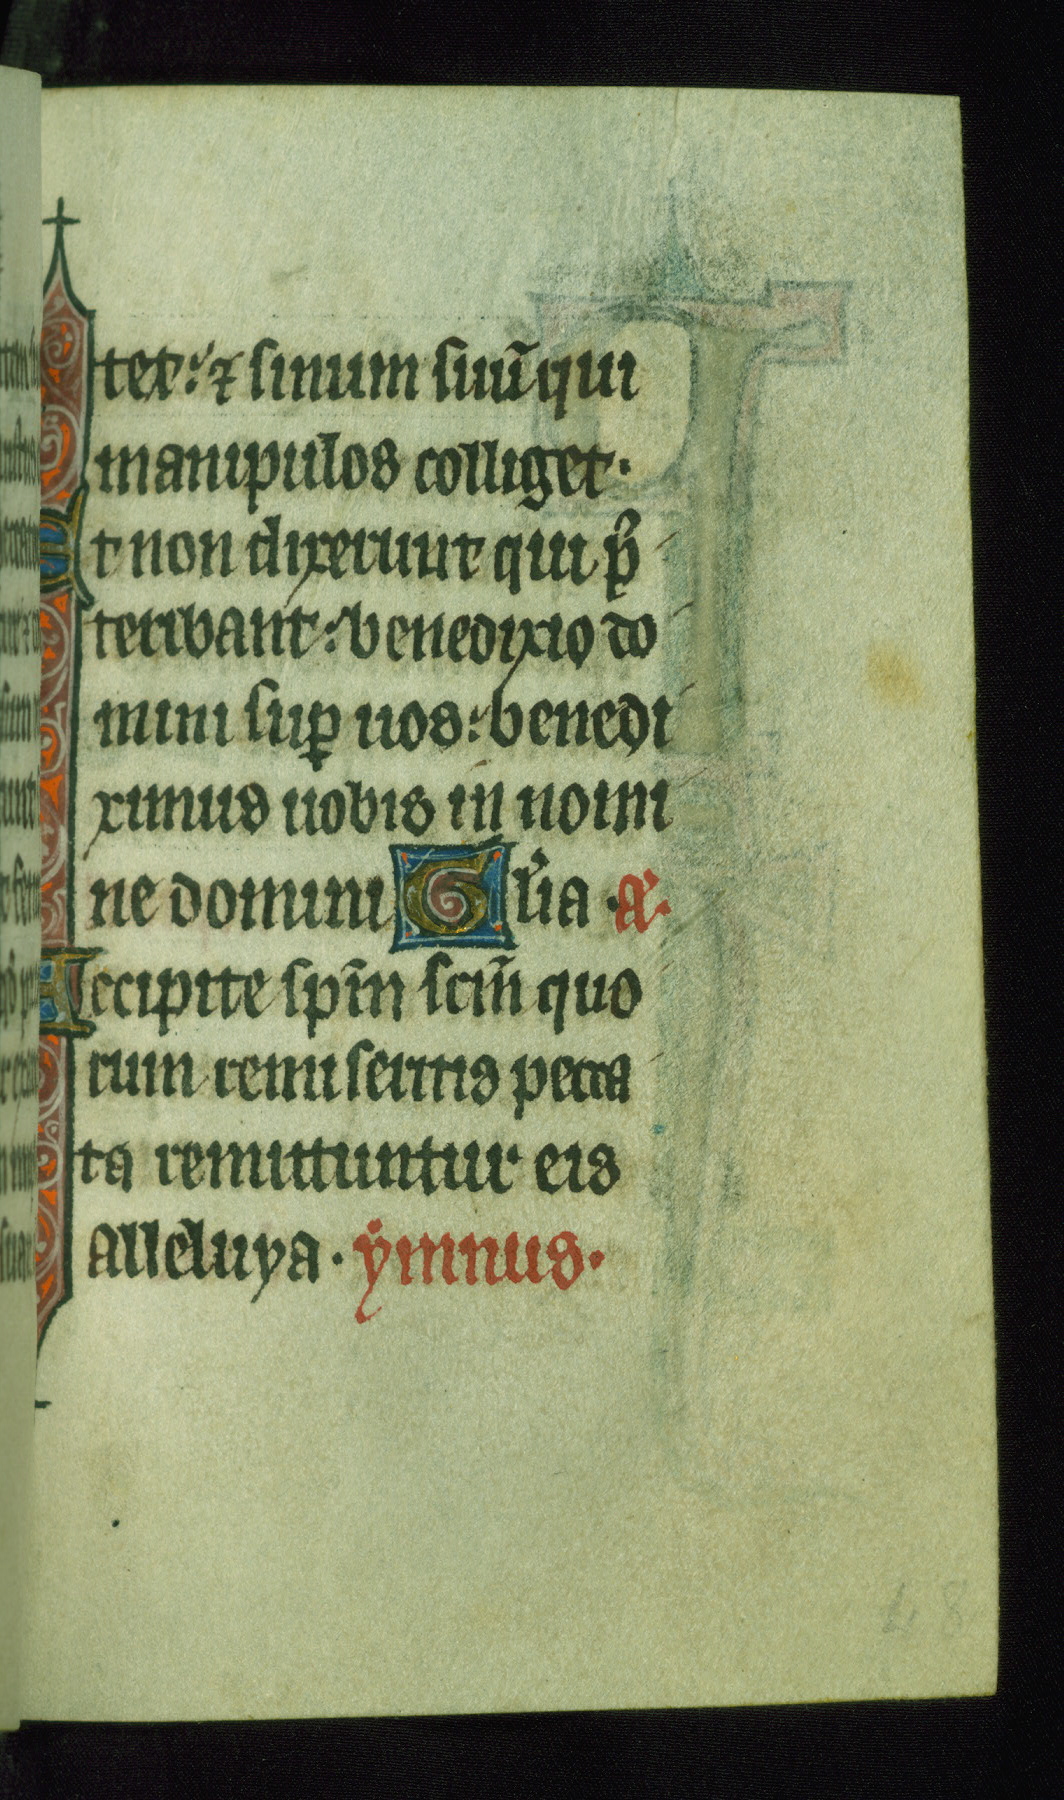 tet: ⁊ sinum suū qui
manipulos colliget·
Et non dixerunt qui p̄
teribant: benedixio do
mini suꝑ uos: benedi
ximus uobis in nomi
ne domini Gl'ia · a͛·
Accipite sp̄m sc̄m quo
rum remiseritis pecca
ta remittuntur eis
alleluya · ymnus·
48